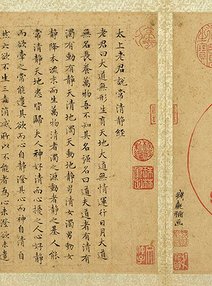 太上老君說常清靜經
老君曰大道無形生育天地大道無情運行日月大道
無名長養萬物吾不知其名強名曰道夫道者有清有
濁有動有靜天清地濁天動地靜男清女濁男動女
靜降本流末而生萬物清者濁之源動者靜之基人能
常清靜天地悉皆歸夫人神好清而心擾之人心好靜
而欲牽之常能遣其欲而心自靜澄其心而神自清自
然六欲不生三毒消滅所以不能者為心未澄欲未遣